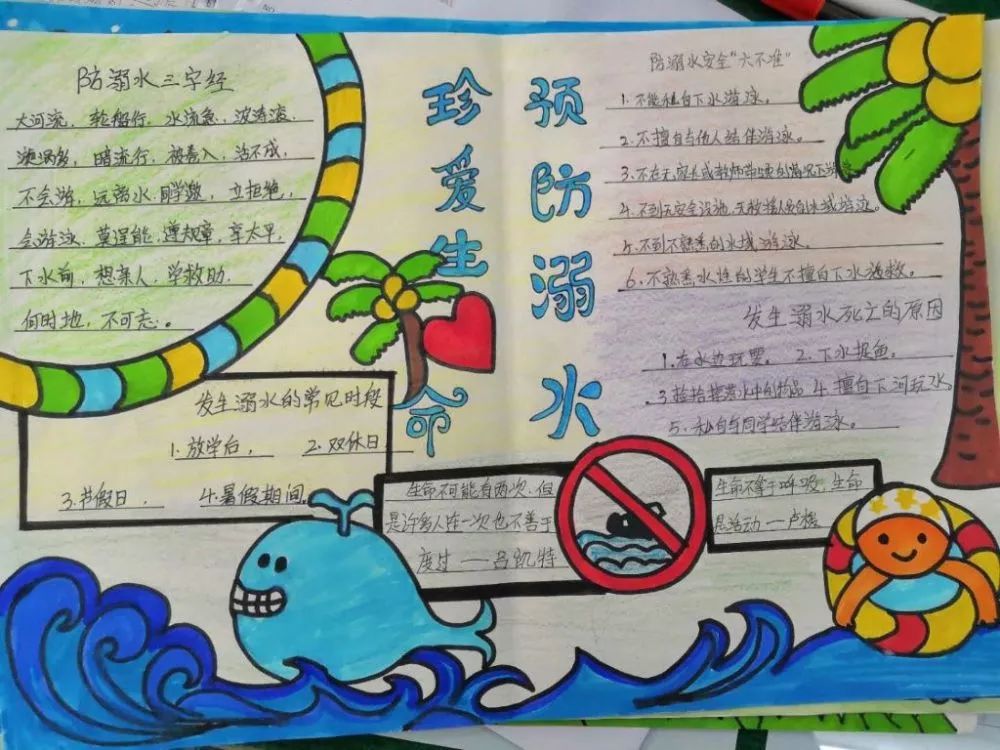 防溺水三字经
大河流，轮船行，水流急，波涛滚，
漩涡多，暗流行，被卷入，活不成，
不会游，远离水，同学邀，立拒绝，
会游泳，莫逞能，遵规章，享太平，
下水前，想亲人，学救助，
何时地，不可忘。
珍爱生命
预防溺水
防溺水安全“六不准”
1.不能私自下水游泳。
2.不擅自与他人结伴游泳。
3.不在无家长或教师带领的情况下游泳
4.不到无安全设施、无救援人员的水域游泳。
5.不到不熟悉的水域游泳
6.不熟悉水性的学生不擅自下水施救。
发生溺水死亡的原因
1.在水边玩耍。 2.下水捉鱼。
3.捡拾掉落水中的物品 4.擅自下河玩水
5.私自与同学结伴游泳。
发生溺水的常见时段
1.放学后， 2.双休日
3.节假日， 4.暑假期间。
生命不可能有两次，但
是许多人连一次也不善于
度过——吕凯特
生命不等于呼吸，生命
是活动——卢梭